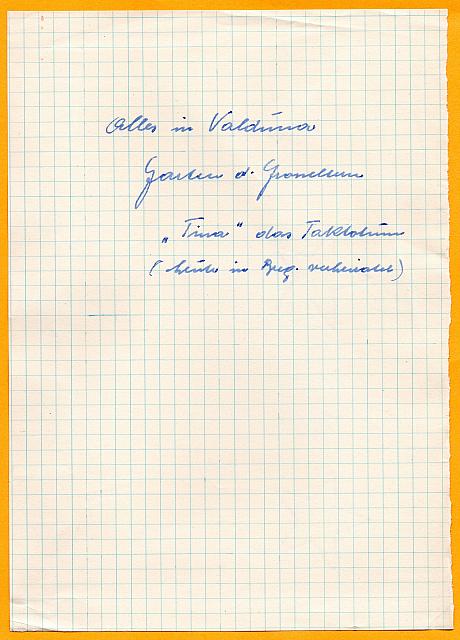 Alles in Valduna
Garten d. Grosseltern
„Tina" das Faktotum
(heute in Breg. verheiratet)